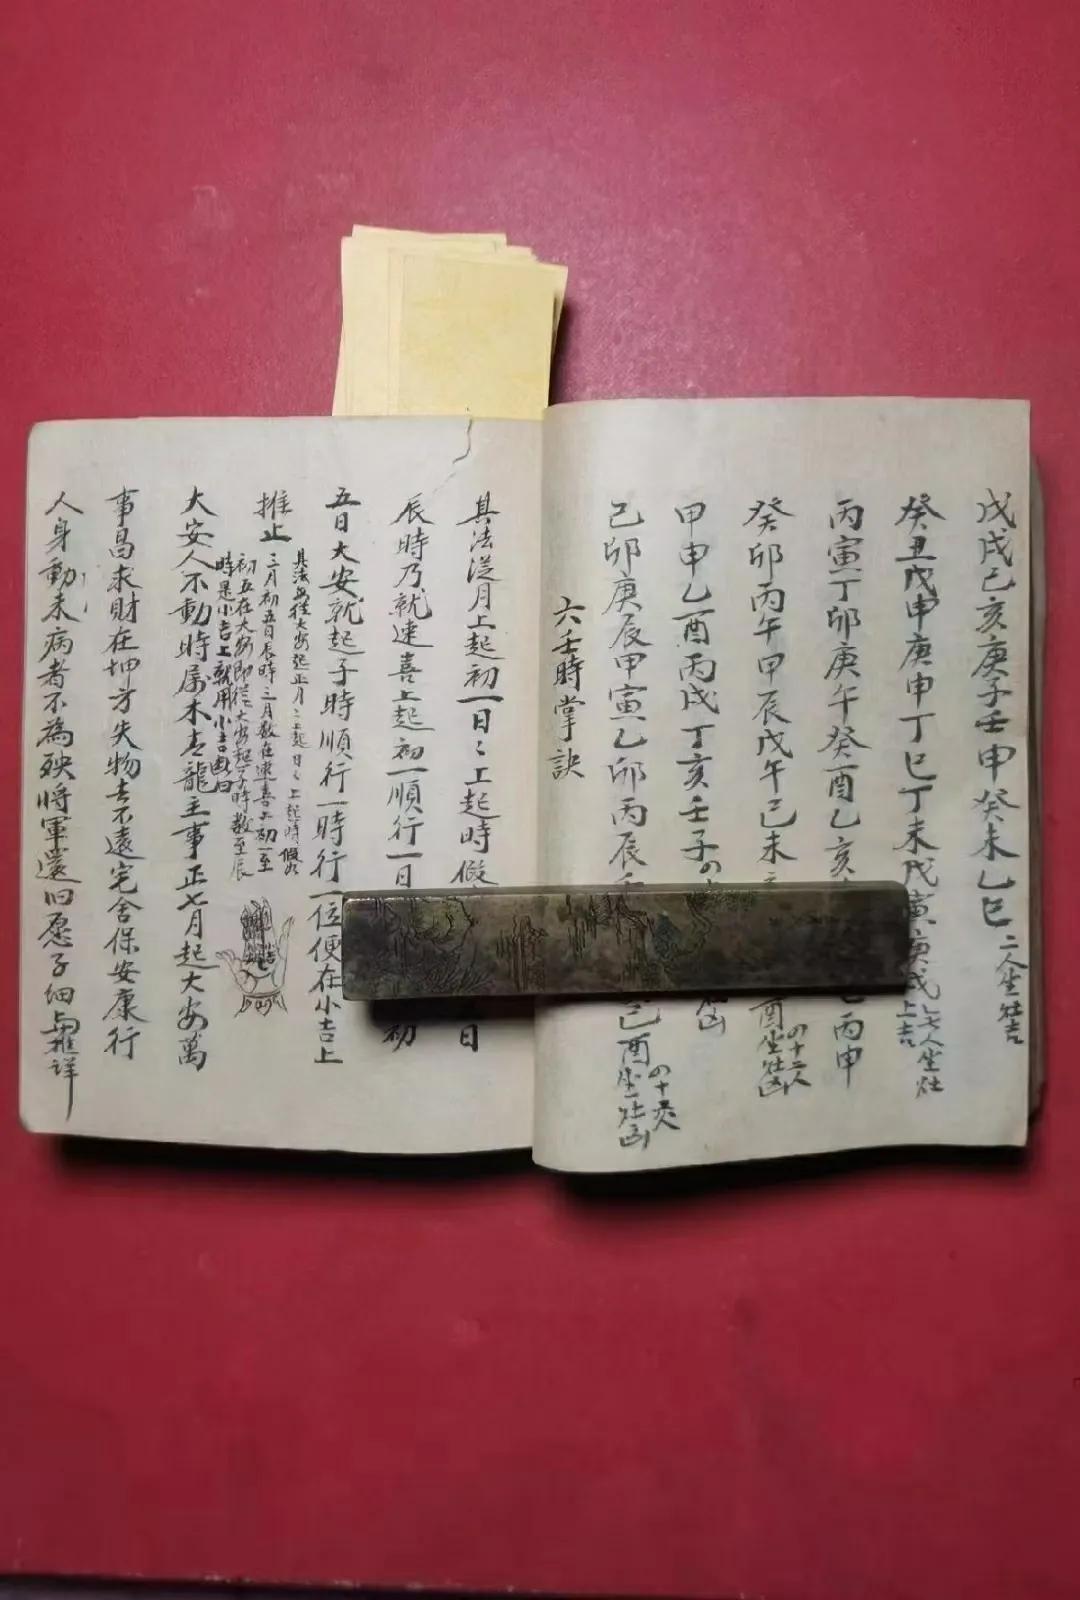 戊戌己亥庚子壬申癸未乙巳二人坐灶吉
癸丑戊申庚申丁巳丁未戊寅庚戌上吉七人坐灶
丙寅丁卯庚午癸酉乙亥
丙申
癸卯丙午甲辰戊午己未
酉の十二人坐灶凶
甲申乙酉丙戌丁亥壬子の
凶
己卯庚辰甲寅乙卯丙辰
己酉の十五人坐灶凶
六壬時掌訣
其法從月上起初一日〻上起時假
日
辰時乃就速喜上起初一順行一日
初
五日大安就起子時順行一時行一位便在小吉上
推止
其法每從大安起正月〻上起日〻上起時假如
三月初五日辰時三月数在速喜上初一至
初五在大安即從大安起子時数至辰
時是小吉上就用小吉曲曰
大安人不動時屬木青龍主事正七月起大安萬
事昌求財在坤方失物去不遠宅舍保安康行
人身動未病者不為殃將軍還旧愿子細与推詳